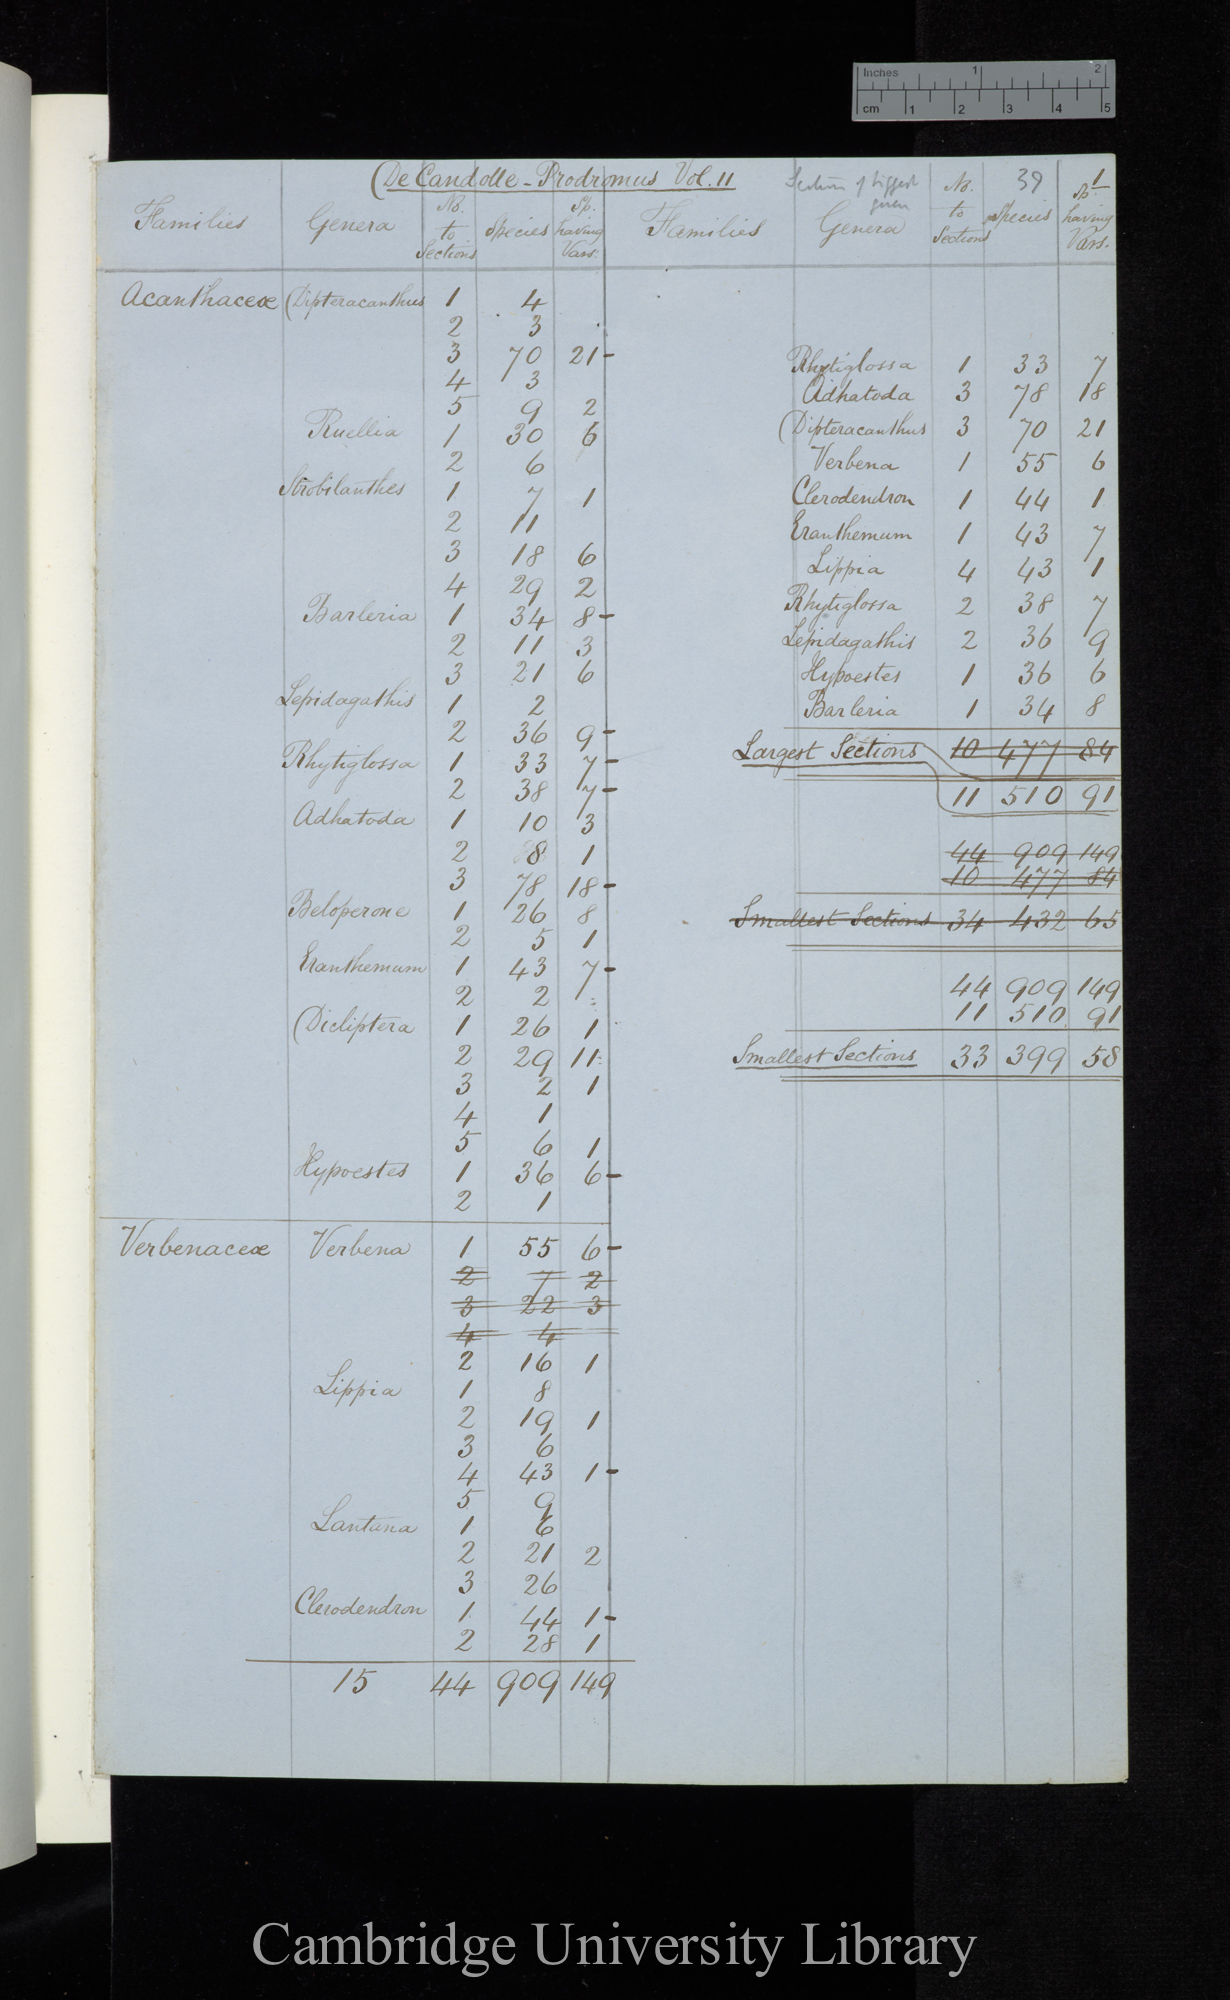 Inches 1 2
cm 1 2 3 4 5
De Candolle - Prodromus Vol. 11
Families Genera No. to Sections Species Sp. having Vars.
Acanthaceæ Dipteracanthus 1 4
2 3
3 70 21 -
4 3
5 9 2
Ruellia 1 30 6
2 6
Strobilanthes 1 7 1
2 11
3 18 6
4 29 2
Barleria 1 34 8 -
2 11 3
3 21 6
Lepidagathis 1 2
2 36 9 -
Rhytiglossa 1 33 7 -
2 38 7 -
Adhatoda 1 10 3
2 8 1
3 78 18 -
Beloperone 1 26 8
2 5 1
Eranthemum 1 43 7 -
2 2
Dicliptera 1 26 1
2 29 11
3 2 1
4 1
5 6 1
Hypoestes 1 36 6 -
2 1
Verbenaceæ Verbena 1 55 6 -
2 7 2
3 22 3
4 4
2 16 1
Lippia 1 8
2 19 1
3 6
4 43 1 -
5 9
Lantana 1 6
2 21 2
3 26
Clerodendron 1 44 1 -
2 28 1
15 44 909 149
Sections of biggest genera
39 1
Families Genera No. to Sections Species Sp. having Vars.
Rhytiglossa 1 33 7
Adhatoda 3 78 18
Dipteracanthus 3 70 21
Verbena 1 55 6
Clerodendron 1 44 1
Eranthemum 1 43 7
Lippia 4 43 1
Rhytiglossa 2 38 7
Lepidagathis 2 36 9
Hypoestes 1 36 6
Barleria 1 34 8
Largest Sections 10 477 84
11 510 91
44 909 149
10 477 84
Smallest Sections 34 432 65
44 909 149
11 510 91
Smallest Sections 33 399 58
Cambridge University Library